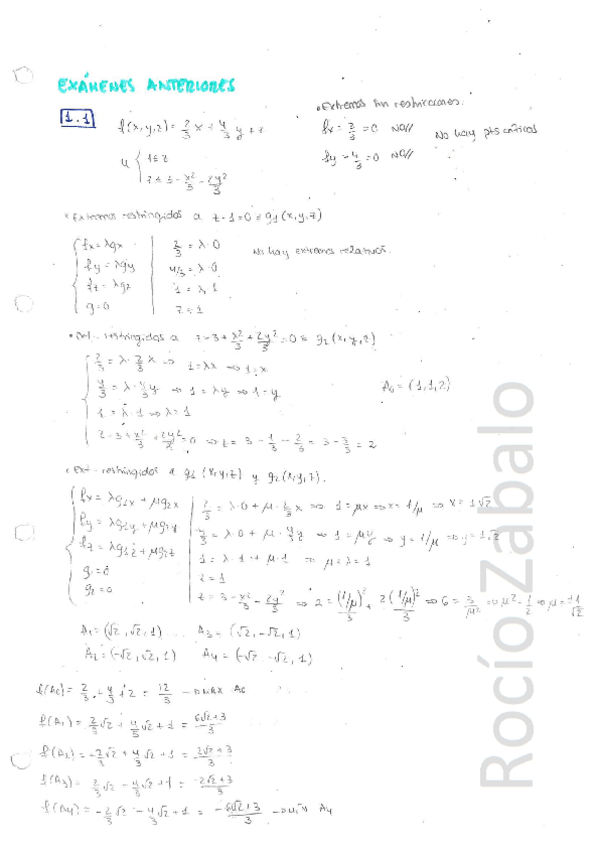 EXÁMENES ANTERIORES
1.1
f(x,y,z) = 2/3 x + 4/3 y + z
• Extremos sin restricciones.
fx = 2/3 = 0 NO//
fy = 4/3 = 0 NO//
No hay pts críticos
M { 1 ≤ z
z ≤ 3 - x²/3 - 2y²/3
• Extremos restringidos a z - 1 = 0 ≡ g1(x,y,z)
fx = λgx | 2/3 = λ·0
fy = λgy | 4/3 = λ·0
fz = λgz | 1 = λ·1
g = 0 | z = 1
No hay extremos relativos.
restringidos a z - 3 + x²/3 + 2y²/3 = 0 ≡ g2(x,y,z)
2/3 = λ·2/3 x ⇒ 1 = λx ⇒ 1 = x
4/3 = λ·4/3 y ⇒ 1 = λy ⇒ 1 = y
A0 = (1,1,2)
1 = λ·1 ⇒ λ = 1
z - 3 + x²/3 + 2y²/3 = 0 ⇒ z = 3 - 1/3 - 2/3 = 3 - 3/3 = 2
• Ext. restringidos a g1(x,y,z) y g2(x,y,z).
fx = λg1x + μg2x | 2/3 = λ·0 + μ·2/3 x ⇒ 1 = μx ⇒ x = 1/μ
fy = λg1y + μg2y | 4/3 = λ·0 + μ·4/3 y ⇒ 1 = μy ⇒ y = 1/μ
fz = λg1z + μg2z | 1 = λ·1 + μ·1
g1 = 0 | z = 1
g2 = 0 | z = 3 - x²/3 - 2y²/3 ⇒ 2 = (1/μ)²/3 + 2(1/μ)²/3 ⇒ 6 = 3/μ² ⇒ μ² = 1/2 ⇒ μ = ±1/√2
A1 = (√2, √2, 1) A3 = (√2, -√2, 1)
A2 = (-√2, √2, 1) A4 = (-√2, -√2, 1)
f(A0) = 2/3 + 4/3 + 2 = 12/3 → MAX A0
f(A1) = 2/3 √2 + 4/3 √2 + 1 = 6√2+3/3
f(A2) = -2/3 √2 + 4/3 √2 + 1 = 2√2+3/3
f(A3) = 2/3 √2 - 4/3 √2 + 1 = -2√2+3/3
f(A4) = -2/3 √2 - 4/3 √2 + 1 = -6√2+3/3 → MIN A4
Rocío Zabalo